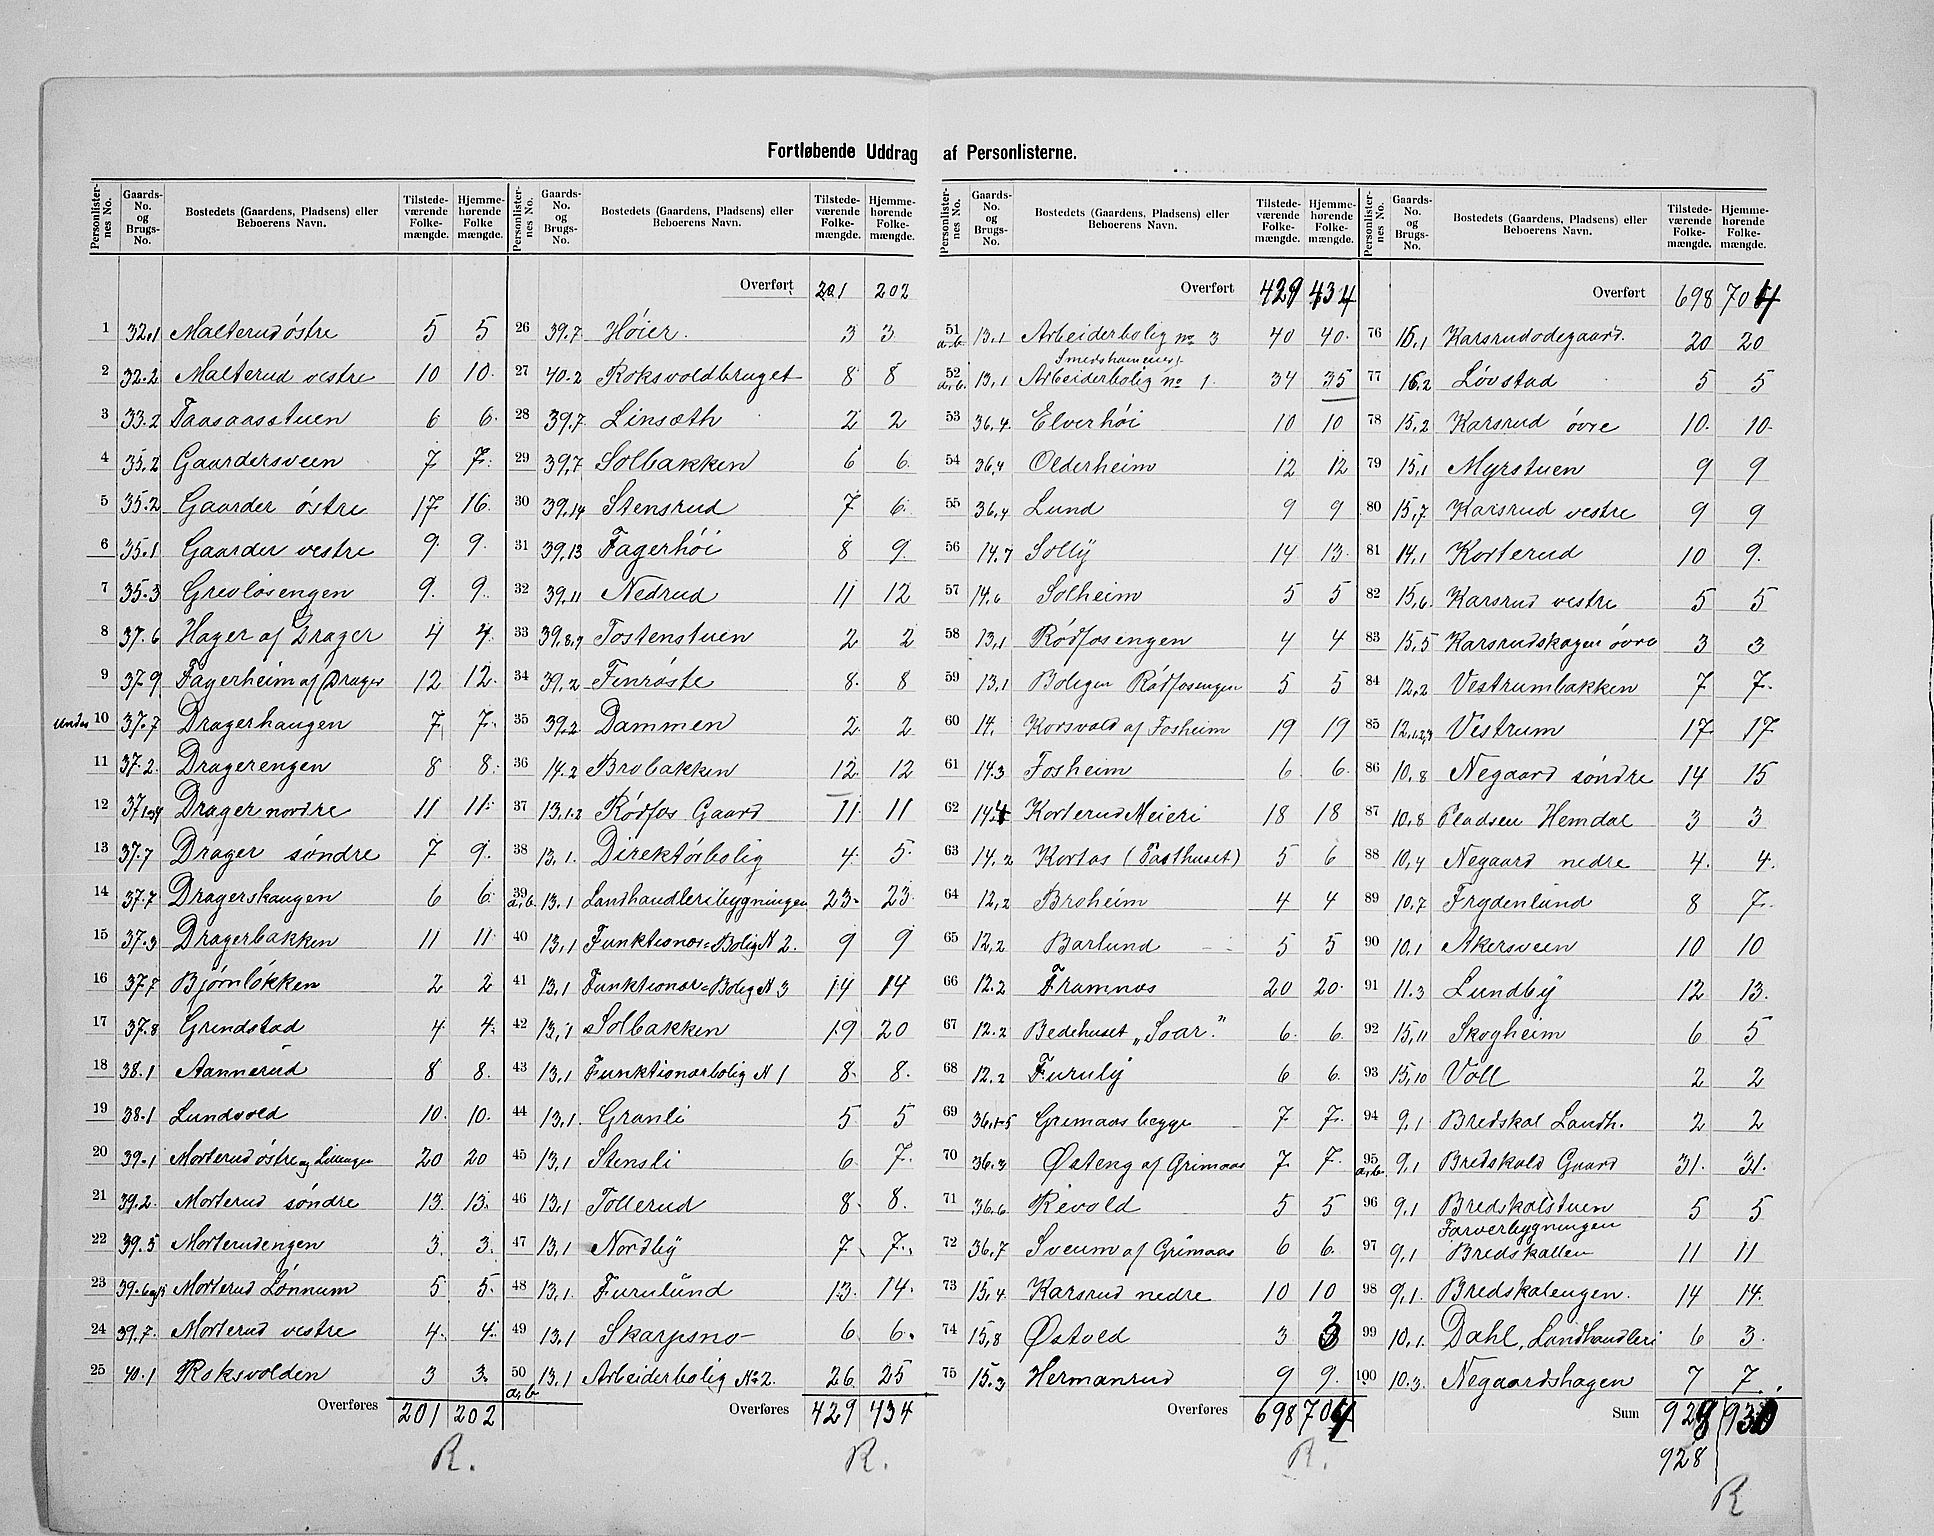 Fortløbende Uddrag af Personlisterne.
Personlister-nes No. Gaards-No. og Brugs-No. Bostedets (Gaardens, Pladsens) eller Beboerens Navn. Tilstede-værende Folke-mængde. Hjemme-hørende Folke-mængde.
1 32.1 Malterud östre 5 5
2 32.2 Malterud vestre 10 10
3 33.2 Taasaasstuen 6 6
4 35.2 Gaardersveen 7 7
5 35.2 Gaarder östre 17 16
6 35.1 Gaarder vestre 9 9
7 35.3 Grevlosengen 9 9
8 37.6 Hager af Drager 4 4
9 37.9 Fagerheim af Drager 12 12
10 37.7 Dragerhaugen 7 7
11 37.2 Dragerengen 8 8
12 Drager nordre 11 11
13 37.7 Drager søndre 7 9
14 37.7 Dragerskaugen 6 6
15 37.3 Dragerbakken 11 11
16 37.7 Bjørnløkken 2 2
17 37.8 Grindstad 4 4
18 38.1 Aannerud 8 8
19 38.1 Lundvold 10 10
20 39.1 Morterud östre og 20 20
21 39.2 Morterud søndre 13 13
22 39.5 Morterudengen 3 3
23 Morterud Lønnum 5 5
24 39.7 Morterud vestre 4 4
25 40.1 Roksvolden 3 3
Overføres 201 202
R.
Personlister-nes No. Gaards-No. og Brugs-No. Bostedets (Gaardens, Pladsens) eller Beboerens Navn. Tilstede-værende Folke-mængde. Hjemme-hørende Folke-mængde.
Overført 201 202
26 39.7 Høier 3 3
27 40.2 Roksvoldbruget 8 8
28 39.7 Linsæth 2 2
29 39.7 Solbakken 6 6
30 39.14 Stensrud 7 6
31 39.13 Fagerhøi 8 9
32 39.11 Nedrud 11 12
33 39.8,9 Tostenstuen 2 2
34 39.2 Finrøste 8 8
35 39.2 Dammen 2 2
36 14.2 Brobakken 12 12
37 13.1.2 Rödfos Gaard 11 11
38 13.1. Direktörbolig 4 5
39 a,b. 13.1 Landhandleribygningen 23 23
40 13,1 Funktionær=Bolig N 2. 9 9
41 13,1 Funktionær=Bolig N 3 14 14
42 13,1 Solbakken 19 20
43 13,1 Funktionærbolig N 1 8 8
44 13,1. Granli 5 5
45 13,1 Stensli 6 7
46 13,1 Tollerud 8 8
47 13,1 Nordby 7 7
48 13,1 Furulund 13 14
49 13,1 Skarpsno 6 6
50 a,b 13,1 Arbeiderbolig No 2. 26 25
Overføres 429 434
R.
Personlister-nes No. Gaards-No. og Brugs-No. Bostedets (Gaardens, Pladsens) eller Beboerens Navn. Tilstede-værende Folke-mængde. Hjemme-hørende Folke-mængde.
Overført 429 434
51 a.b. 13.1 Arbeiderbolig no 3 40 40
52 a,b. 13,1 Arbeiderbolig no 1. 34 35
53 36.4 Elverhöi 10 10
54 36,4 Olderheim 12 12
55 36,4 Lund 9 9
56 14.7 Solly 14 13
57 14.6 Solheim 5 5
58 13,1 Rödfosengen 4 4
59 13,1 Boligen Rödfosengen 5 5
60 14. Korsvold af Fosheim 19 19
61 14.3 Fosheim 6 6
62 14.4 Korterud Meieri 18 18
63 14.2 Kortos (Posthuset) 5 6
64 12,2 Broheim 4 4
65 12,2 Barlund 5 5
66 12.2 Framnæs 20 20
67 12.2 Bedehuset „Soar." 6 6
68 12.2 Furuly 6 6
69 36,1-5 Grimaas begge 7 7
70 36.3 Østeng af Grimaas 7 7
71 36.6 Revold 5 5
72 36,7 Sveum af Grimaas 6 6
73 15,4 Karsrud nedre 10 10
74 15,8 Østvold 3 3
75 15.3 Hermanrud 9 9
Overføres 698 704
R.
Personlister-nes No. Gaards-No. og Brugs-No. Bostedets (Gaardens, Pladsens) eller Beboerens Navn. Tilstede-værende Folke-mængde. Hjemme-hørende Folke-mængde.
Overført 698 704
76 16,1 Karsrudødegaard. 20 20
77 16,2 Løvstad 5 5
78 15,2 Karsrud övre 10 10
79 15,1 Myrstuen 9 9
80 15,7 Karsrud vestre 9 9
81 14,1 Korterud 10 9
82 15,6 Karsrud vestre 5 5
83 15,5 Karsrudskogen övre 3 3
84 12,2 Vestrumbakken 7 7
85 12,1,2,3 Vestrum 17 17
86 10,8 Negaard søndre 14 15
87 10,8 Pladsen Hemdal 3 3
88 10,4 Negaard nedre 4 4
89 10.7 Frydenlund 8 7
90 10,1 Akersveen 10 10
91 11.3 Lundby 12 13
92 15,11 Skogheim 6 5
93 15,10 Voll 2 2
94 9,1 Bredskal Landh. 2 2
95 a,b. 9,1 Bredskald Gaard 31 31
96 9,1 Bredskalstuen 5 5
97 9,1 Farverbygningen Bredskallen 11 11
98 9,1. Bredskalengen. 14 14
99 10,1. Dahl, Landhandleri 6 3
100 10.3. Negaardshagen 7 7
Sum 928 930
928
R